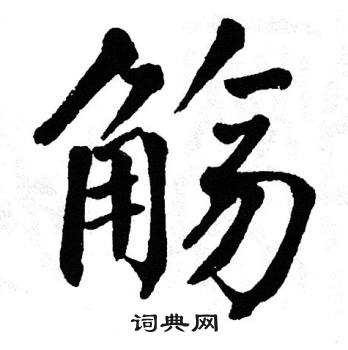 觞
词典网